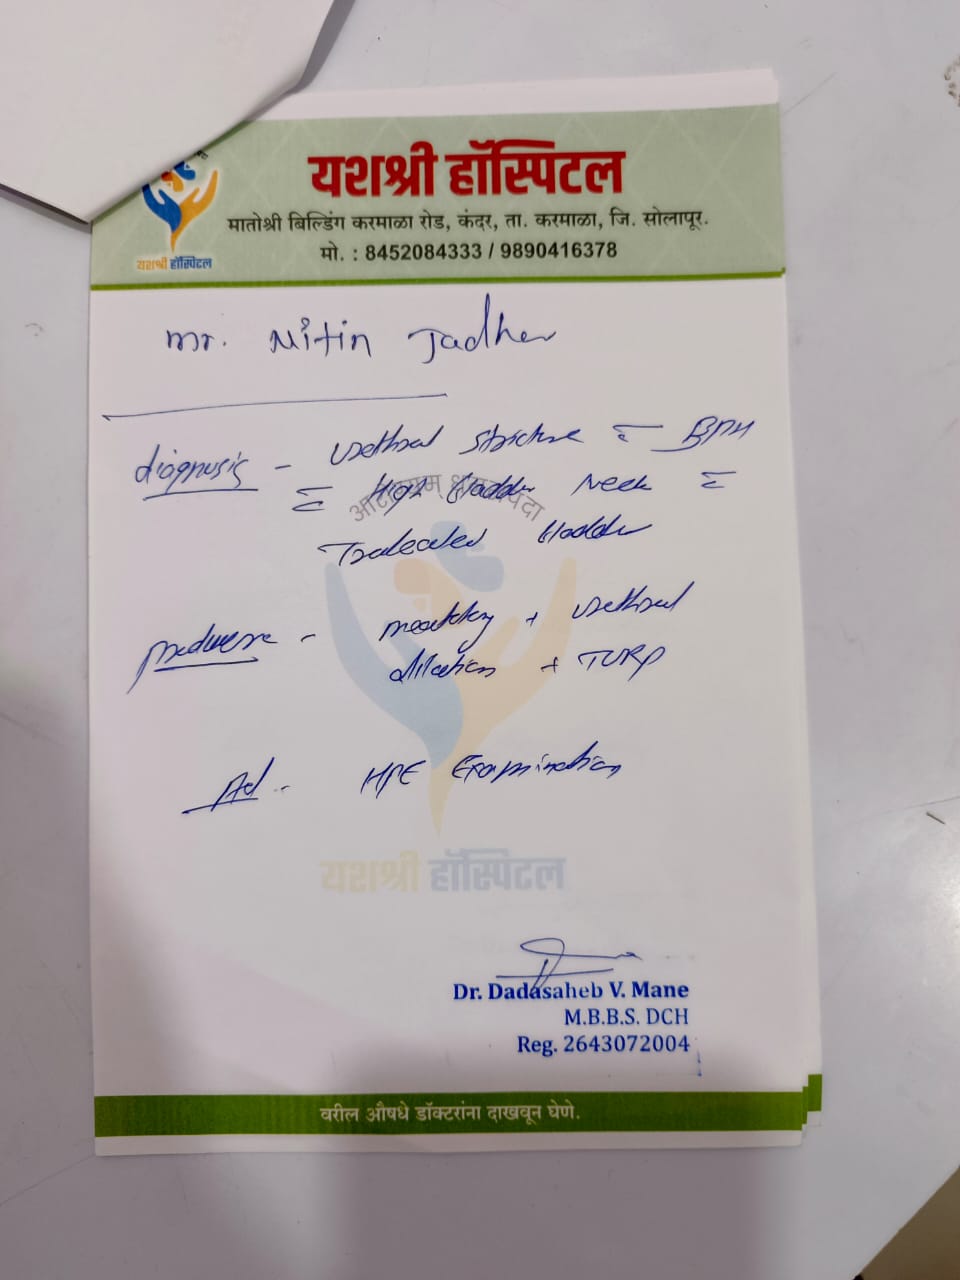 यशश्री हॉस्पिटल
मातोश्री बिल्डिंग करमाळा रोड, कंदर, ता. करमाळा, जि. सोलापूर.
मो. : 8452084333 / 9890416378
यशश्री हॉस्पिटल
Mr. Nitin Jadhav
diagnosis - Urethral stricture c BPH
c High Bladder Neck c
Trabeculated bladder
procedure - meatotomy + urethral
dilation + TURP
Ad - HPE Examination
यशश्री हॉस्पिटल
Dr. Dadasaheb V. Mane
M.B.B.S. DCH
Reg. 2643072004
वरील औषधे डॉक्टरांना दाखवून घेणे.